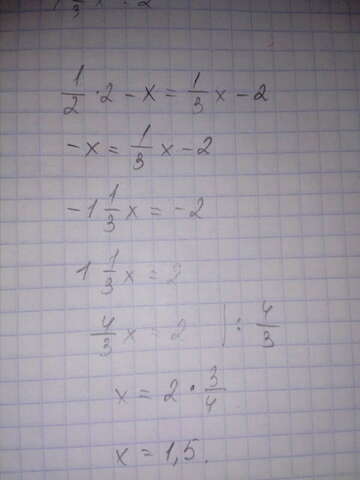 1/2 · 2 - x = 1/3 x - 2
-x = 1/3 x - 2
-1 1/3 x = -2
1 1/3 x = 2
4/3 x = 2 | : 4/3
x = 2 · 3/4
x = 1,5.